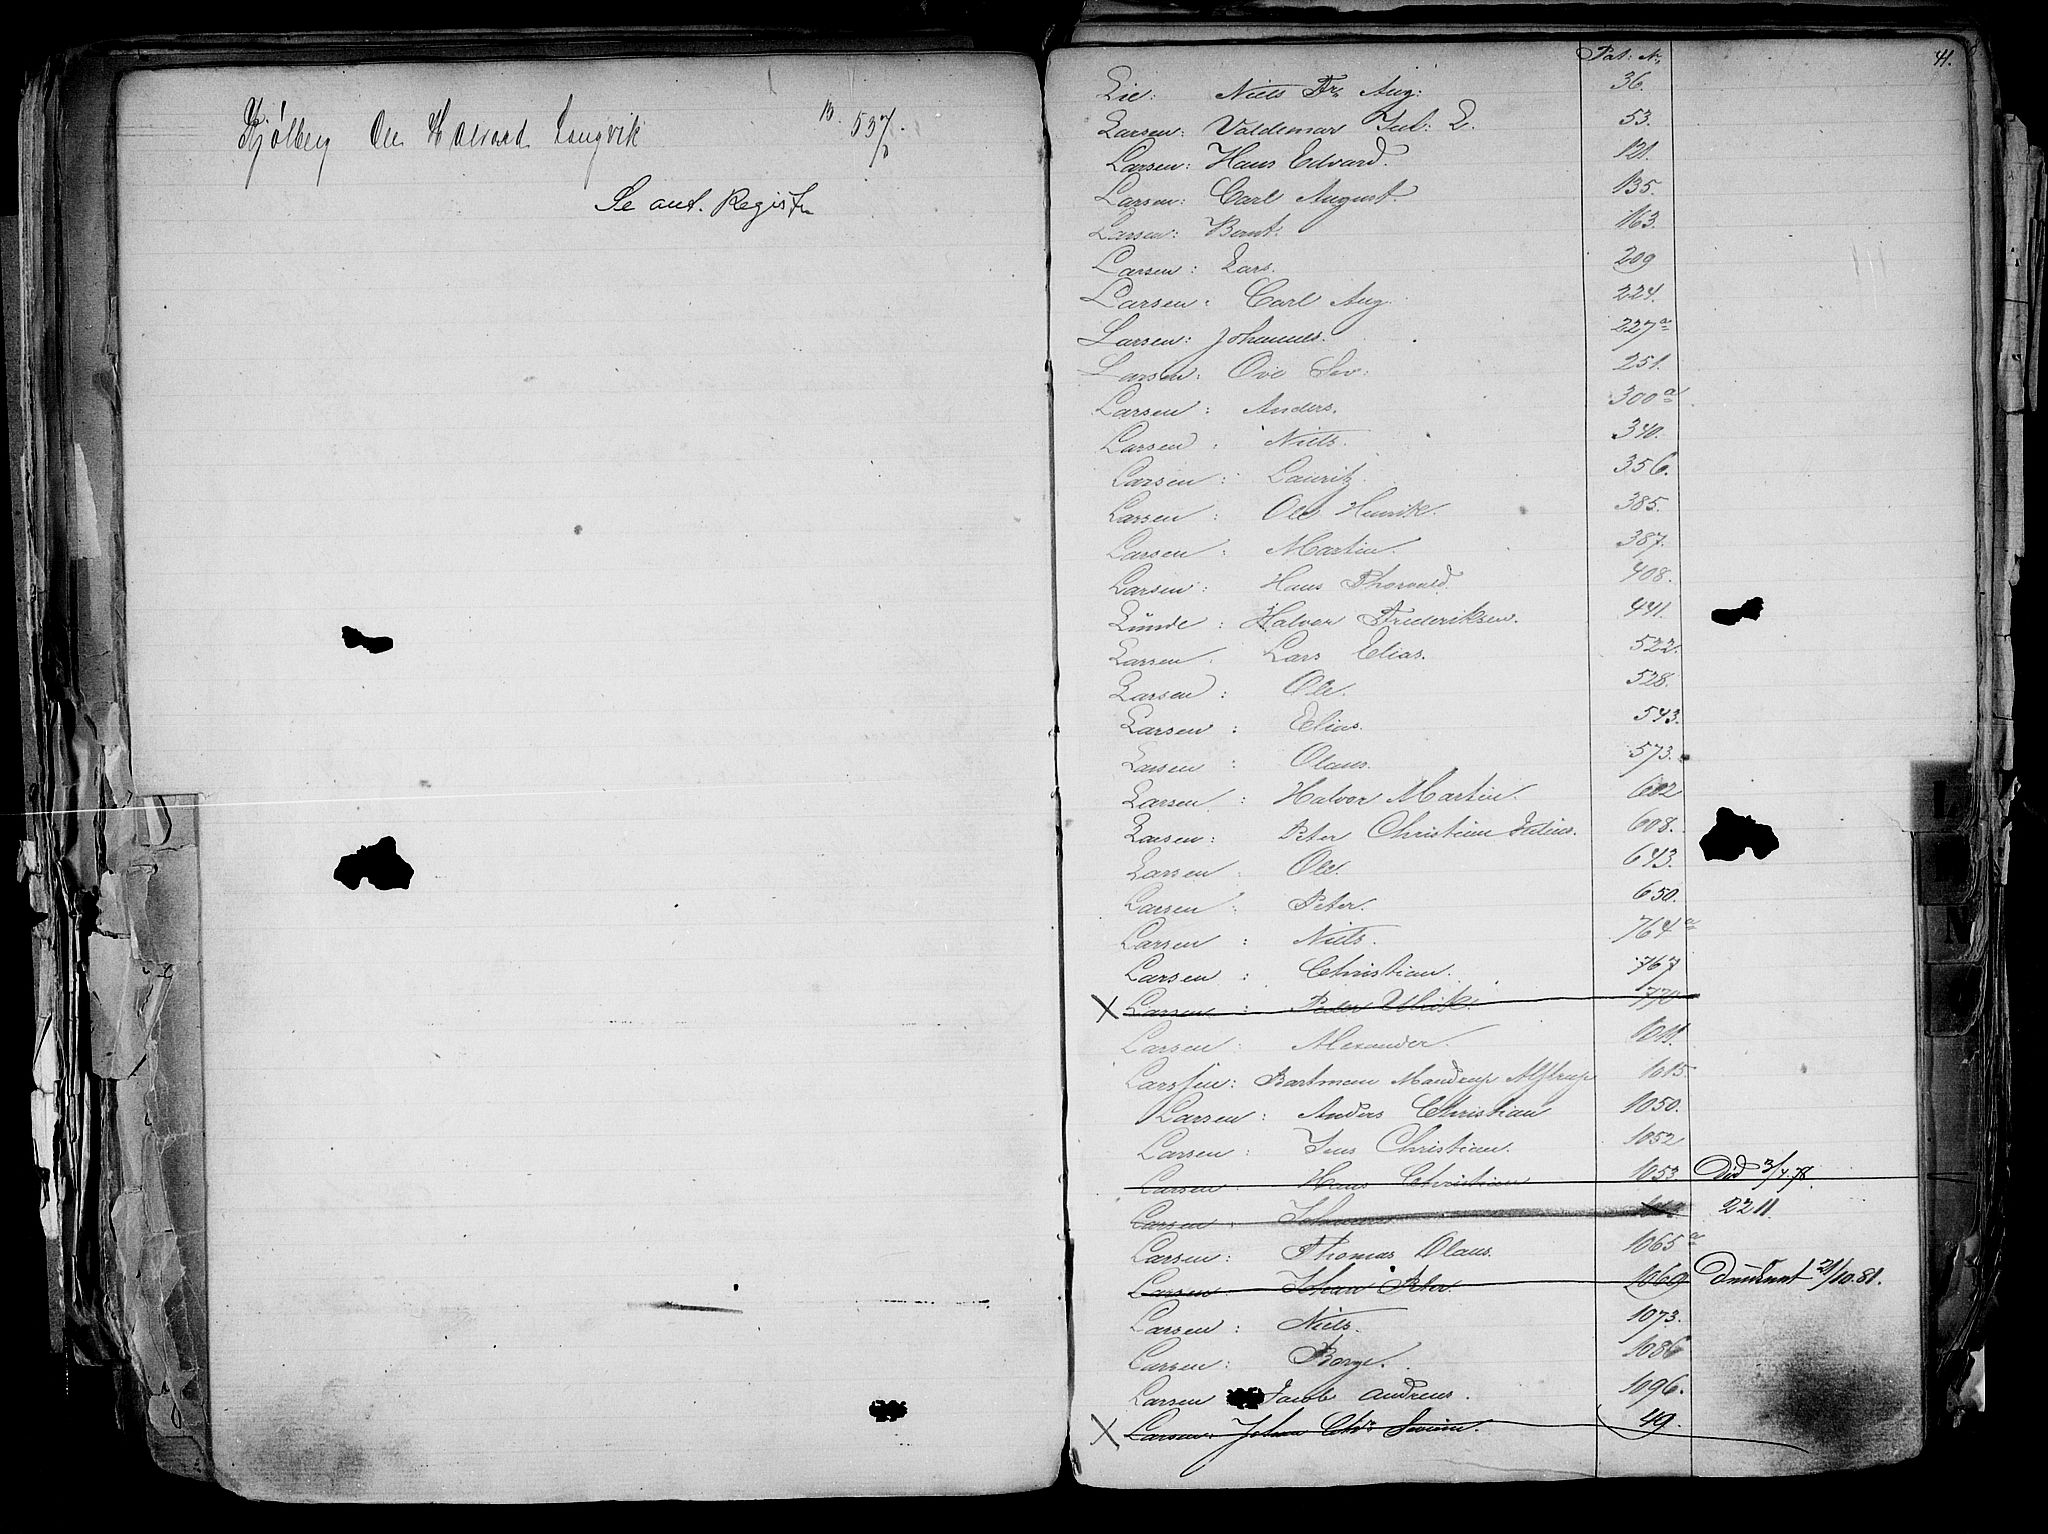 Kjølberg Ole Halvard Langvik B. 537.
Se ant. Register
41.
Pat: Nr
Lie: Niels Fr. Aug: 36.
Larsen: Valdemar Jul: E. 53.
Larsen: Hans Edvard. 121.
Larsen: Carl August. 135.
Larsen: Bernt. 163.
Larsen: Lars. 209
Larsen: Carl Aug. 224.
Larsen: Johannes. 227a
Larsen: Ove Sev: 251.
Larsen: Anders. 300a
Larsen: Niels. 340.
Larsen: Lauritz. 356.
Larsen: Ole Henrik. 385.
Larsen: Martin. 387.
Larsen: Hans Thorvald. 408.
Lunde: Halvor Frederiksen. 441.
Larsen. Lars Elias. 522.
Larsen: Ole. 528.
Larsen: Elias. 543.
Larsen: Olaus. 573.
Larsen: Halvor Martin. 602
Larsen: Peter Christian Julius. 608.
Larsen: Ole. 643.
Larsen: Peter. 650.
Larsen: Niels. 764a
Larsen: Christian. 767
X Larsen: Peder Ulrik. 770
Larsen: Alexander. 1011.
Larssen: Bartmann Mandrup Alstrup 1015.
Larsen: Anders Christian 1050.
Larsen: Jens Christian. 1052
Larsen: Hans Christian 1053. Død 3/4.78.
Larsen: 2211.
Larsen: Thomas Olaus. 1065a
Larsen: Johan Peter. 1069 21/10.81.
Larsen: Niels. 1073.
Larsen: Borge. 1086
Larsen Jacob Andreas. 1096.
X Larsen: Johan Chr. 49.
L
N